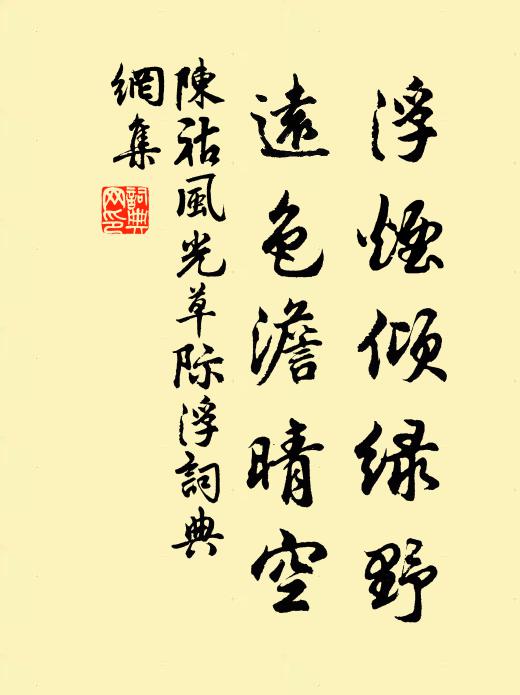 浮煙傾綠野
遠色澹晴空
陳祜風光草际浮詞典
網集
詞典
网印